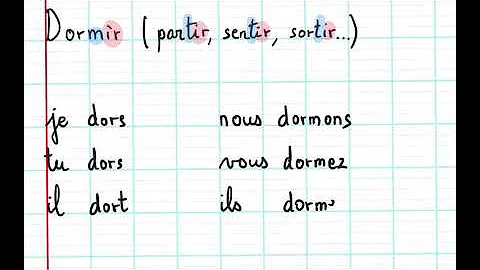 Dormir (partir, sentir, sortir...)
je dors nous dormons
tu dors vous dormez
il dort ils dorm